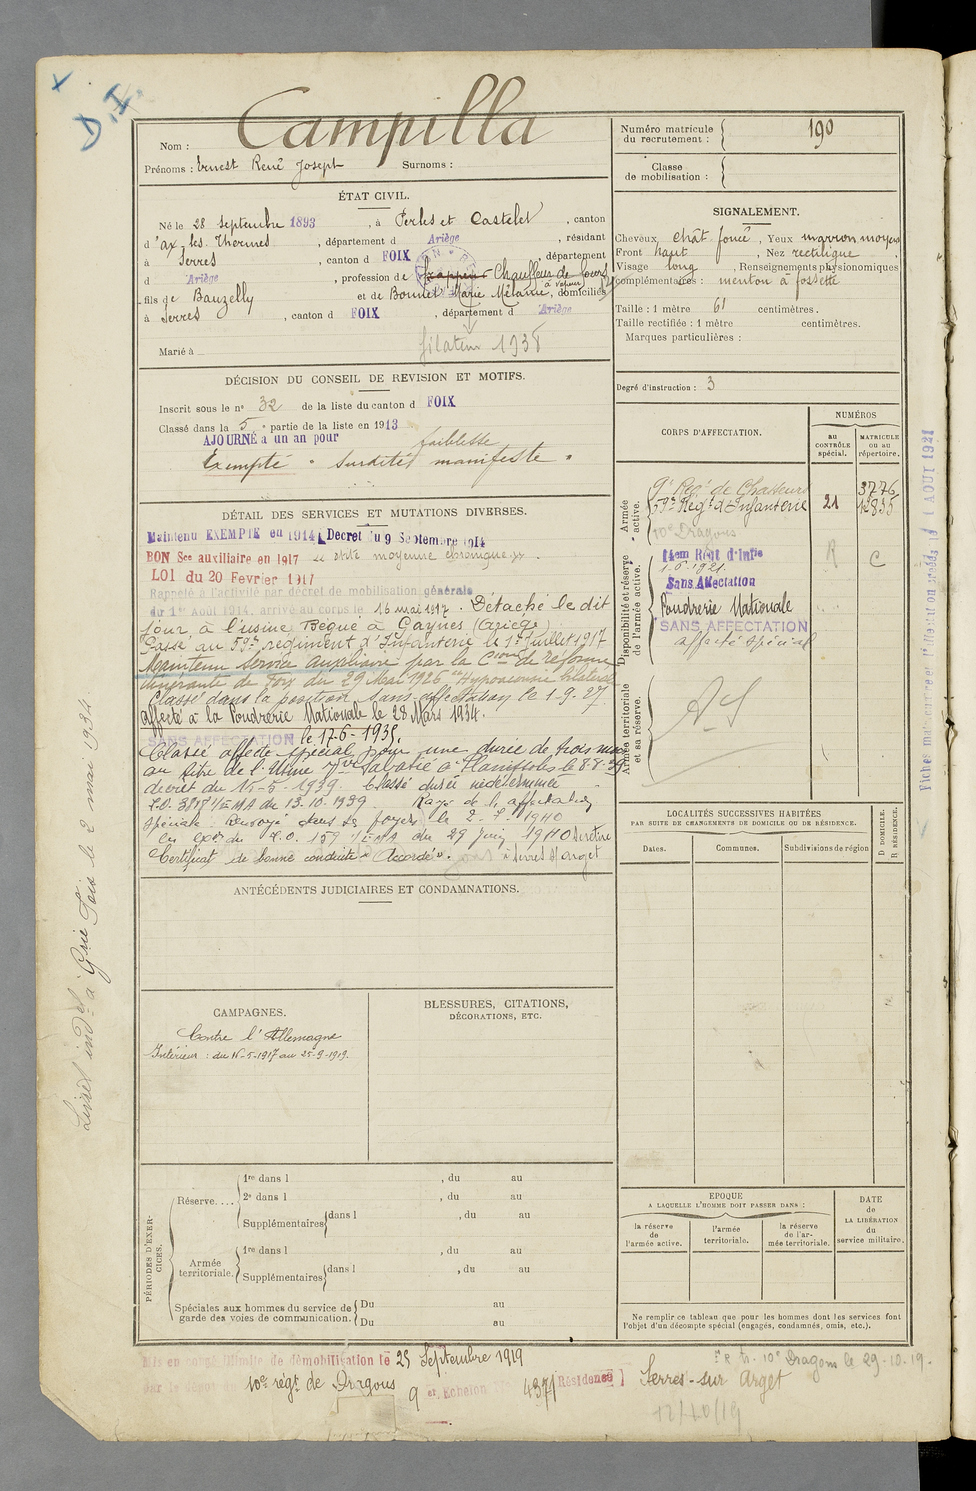 D.I.
Nom : Campilla
Prénoms : Ernest René Joseph Surnoms :
ÉTAT CIVIL.
Né le 28 septembre 1893, à Perles et Castelet, canton
d'ax-les-Thermes, département d Ariège, résidant
à Serres, canton d FOIX, département
d Ariège, profession de Chauffeur de fours
à vapeur
fils de Bauzelly et de Bonnet Marie Mélanie, domiciliés
à Serres, canton d FOIX, département d Ariège
filateur 1938
Marié à
DÉCISION DU CONSEIL DE REVISION ET MOTIFS.
Inscrit sous le nº 32 de la liste du canton d FOIX
Classé dans la 5e partie de la liste en 1913
AJOURNÉ à un an pour faiblesse
Exempté " Surdité manifeste "
DÉTAIL DES SERVICES ET MUTATIONS DIVERSES.
Maintenu EXEMPTÉ en 1914 Decret du 9 Septembre 1914
BON Sce auxiliaire en 1917 otite moyenne chronique
LOI du 20 Février 1917
Rappelé à l'activité par décret de mobilisation générale
du 1er Août 1914, arrivé au corps le 16 mai 1917. Détaché le dit
jour, à l'usine Bequé à
Passé au 59e régiment d'Infanterie le 1er Juillet 1917
Maintenu Service Auxiliaire par la Cion de réforme
itinérante de Foix du 29 Mai 1926 "Hypoacousie bilatérale
Classé dans la position sans affectation le 1-9-27
Affecté à la Poudrerie Nationale le 28 Mars 1934.
SANS AFFECTATION le 17-6-1935.
Classé affecté spécial pour une durée de trois mois
au titre de l'Usine Vve Sabatié à le 8-8-39
décret du 15-5-1939. Classé durée indéterminée
13-10-1939 Rayé de l'affectation
spéciale. Renvoyé dans ses foyers le 2-7-1940
du 29 juin 1940 se retire
Certificat de bonne conduite "Accordé". à Serres s/ arget
ANTÉCÉDENTS JUDICIAIRES ET CONDAMNATIONS.
CAMPAGNES.
Contre l'Allemagne
Intérieur : du 16-5-1917 au 25-9-1919.
BLESSURES, CITATIONS,
DÉCORATIONS, ETC.
PÉRIODES D'EXERCICES.
Réserve....
1re dans l , du au
2e dans l , du au
Supplémentaires dans l , du au
Armée territoriale.
1re dans l , du au
Supplémentaires dans l , du au
Spéciales aux hommes du service de garde des voies de communication.
Du au
Du au
Numéro matricule
du recrutement : 190
Classe
de mobilisation :
SIGNALEMENT.
Cheveux chât foncé, Yeux marron moyen
Front haut, Nez rectiligne
Visage long, Renseignements physionomiques
complémentaires : menton à fossette
Taille : 1 mètre 61 centimètres.
Taille rectifiée : 1 mètre centimètres.
Marques particulières :
Degré d'instruction : 3
CORPS D'AFFECTATION.
NUMÉROS
au CONTRÔLE spécial.
MATRICULE ou au répertoire.
Armée active.
9e Régt de Chasseurs 3776
59e Régt d'Infanterie 21 12835
10e Dragons
Disponibilité et réserve de l'armée active.
14em Regt d'Infie R C
1-6-1921.
Sans Affectation
Poudrerie Nationale
SANS AFFECTATION
affecté spécial
Armée territoriale et sa réserve.
LOCALITÉS SUCCESSIVES HABITÉES
PAR SUITE DE CHANGEMENTS DE DOMICILE OU DE RÉSIDENCE.
Dates. Communes. Subdivisions de région
D DOMICILE.
R RÉSIDENCE.
EPOQUE
A LAQUELLE L'HOMME DOIT PASSER DANS :
la réserve de l'armée active. l'armée territoriale. la réserve de l'armée territoriale.
DATE de LA LIBÉRATION du service militaire.
Ne remplir ce tableau que pour les hommes dont les services font
l'objet d'un décompte spécial (engagés, condamnés, omis, etc.).
Mis en congé illimité de démobilisation le 25 Septembre 1919
10e régt de Dragons 9 em Echelon Nº 4371 Résidence Serres-sur Arget
10e Dragons le 29-10-19.
12/10/19
Livret indel à Gnie Foix le 2 mai 1934
AOUT 1921